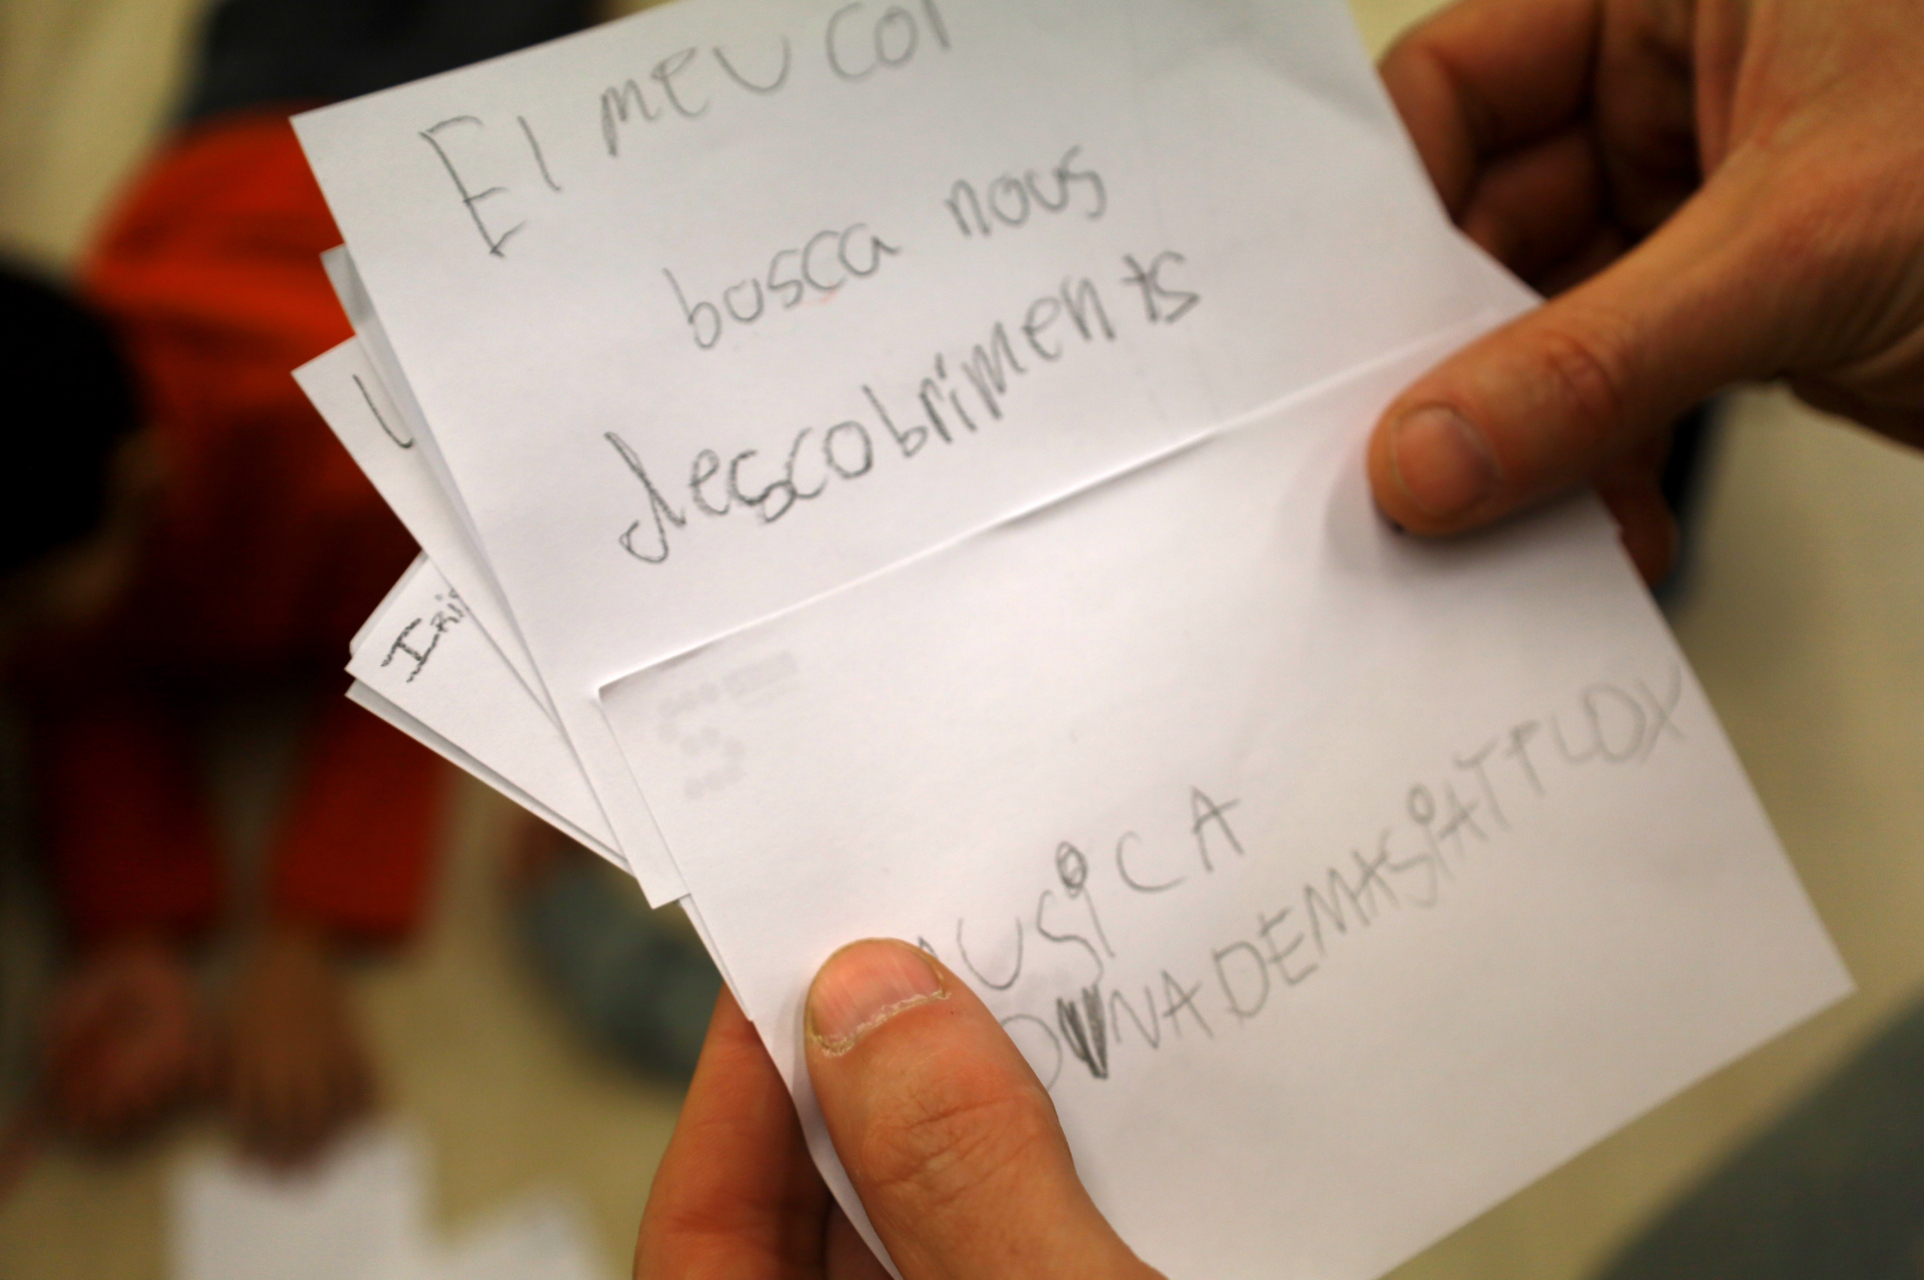 El meu cor
busca nous
descobriments
IRi
USiCA
NADEMASiAT